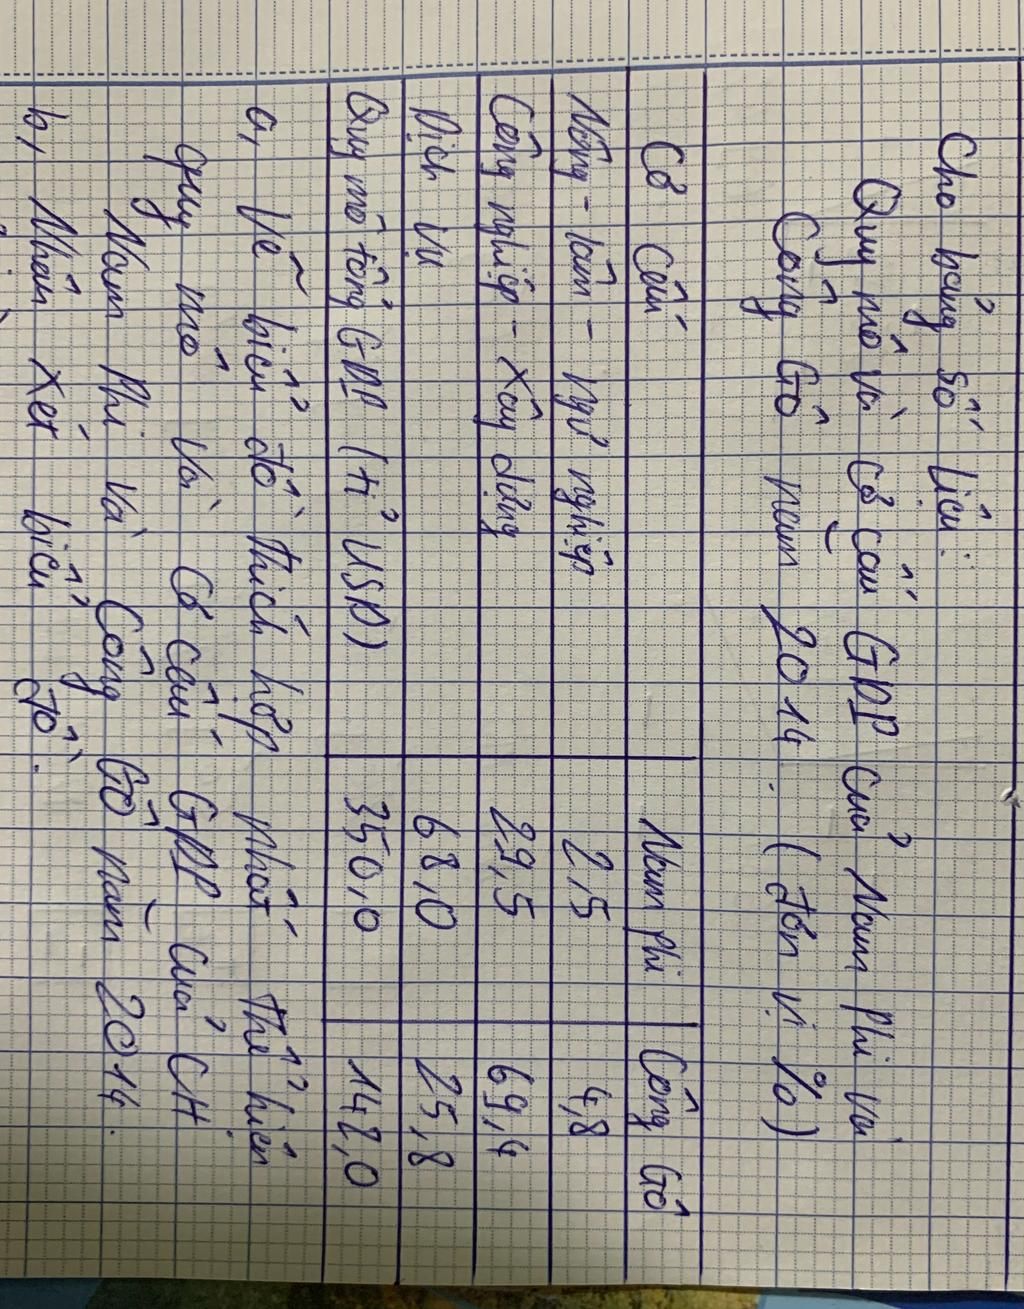 Cho bảng số liệu:
Quy mô và cơ cấu GDP của Nam Phi và
Công Gô năm 2014. (đơn vị %)
Cơ cấu Nam Phi Công Gô
Nông - lâm - ngư nghiệp 2,5 4,8
Công nghiệp - xây dựng 29,5 69,4
Dịch vụ 68,0 25,8
Quy mô tổng GDP (tỉ USD) 350,0 142,0
a, Vẽ biểu đồ thích hợp nhất thể hiện
quy mô và cơ cấu GDP của CH
Nam Phi và Công Gô năm 2014.
b, Nhận xét biểu đồ.